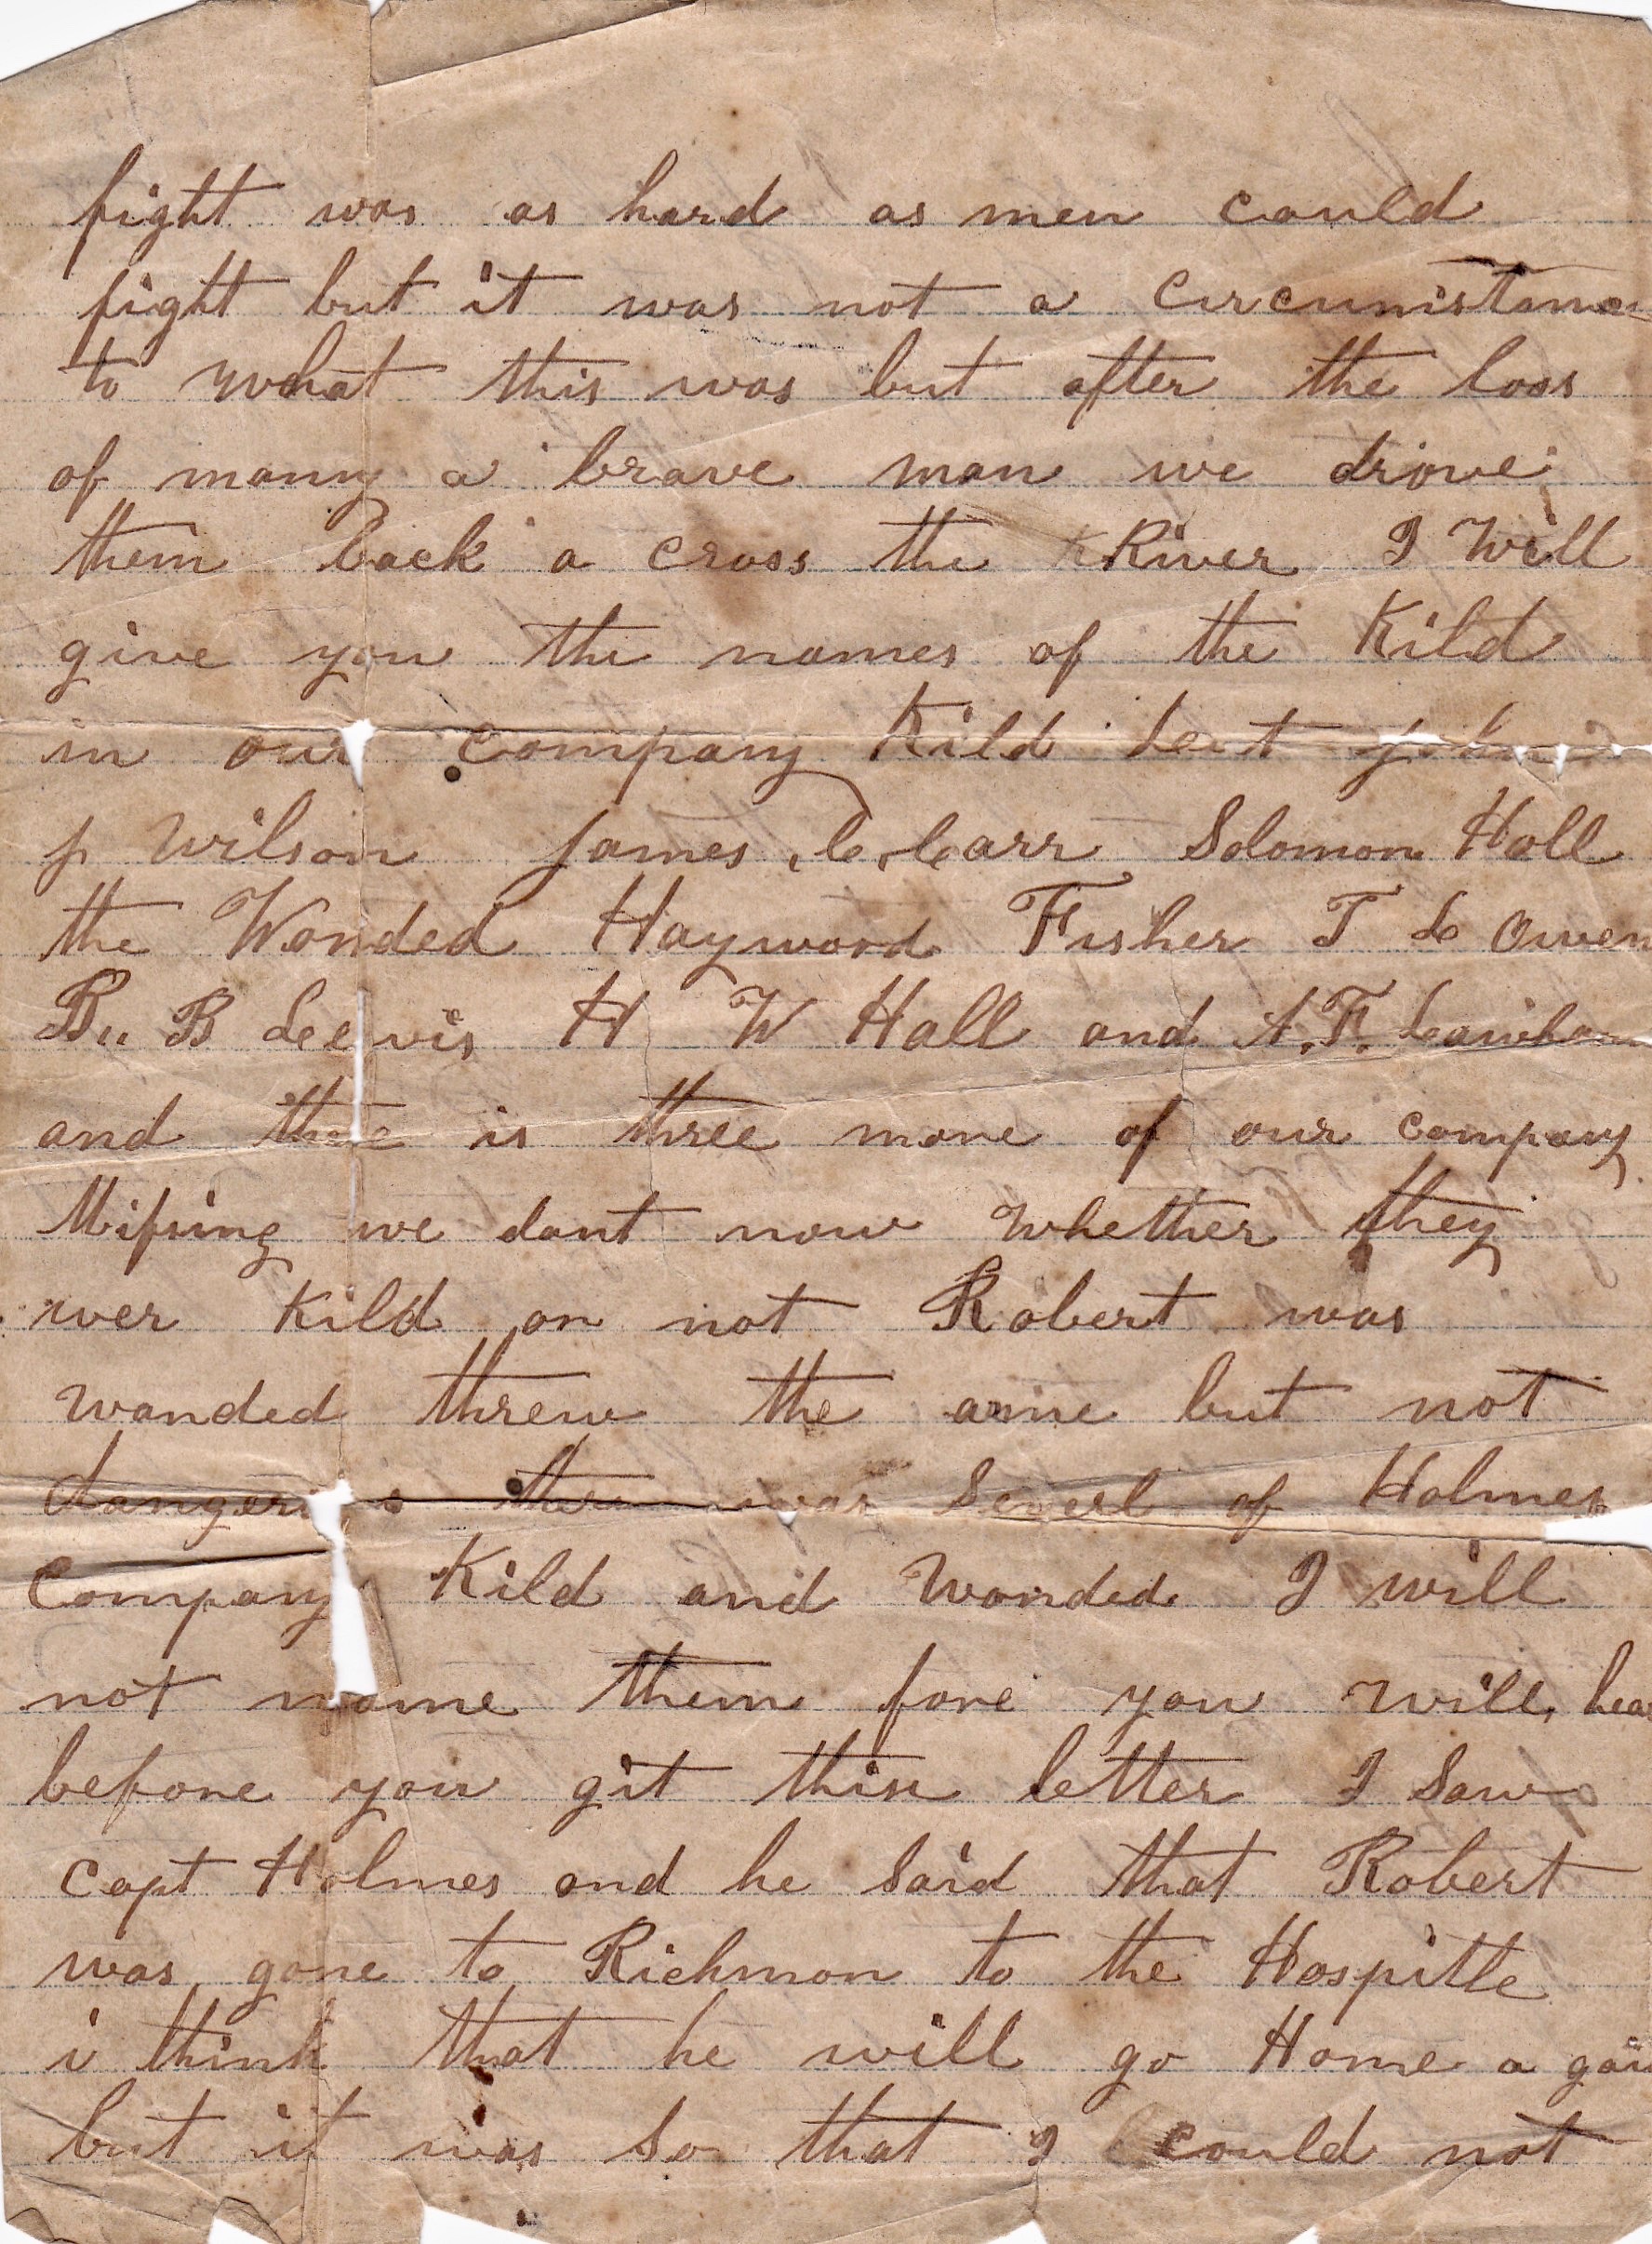 fight was as hard as men could
fight but it was not a circumstance
to what this was but after the loss
of many a brave man we drove
them back a cross the River I Will
give you the names of the Kild
in our company Kild Leut John
p Wilson James C Carr Solomon Hall
the Wonded Haywood Fisher T L Owen
B B Leewis H W Hall and A. F.
and there is three more of our company
Missing we dont now whether they
wer Kild or not Robert was
wonded threw the arme but not
dangerus there was Severl of Holmes
Company Kild and Wonded I will
not name them fore you will hear
before you git this letter I Saw
Capt Holmes and he Said that Robert
was gone to Richmon to the Hospitle
i think that he will go Home a gain
but it was So that I could not